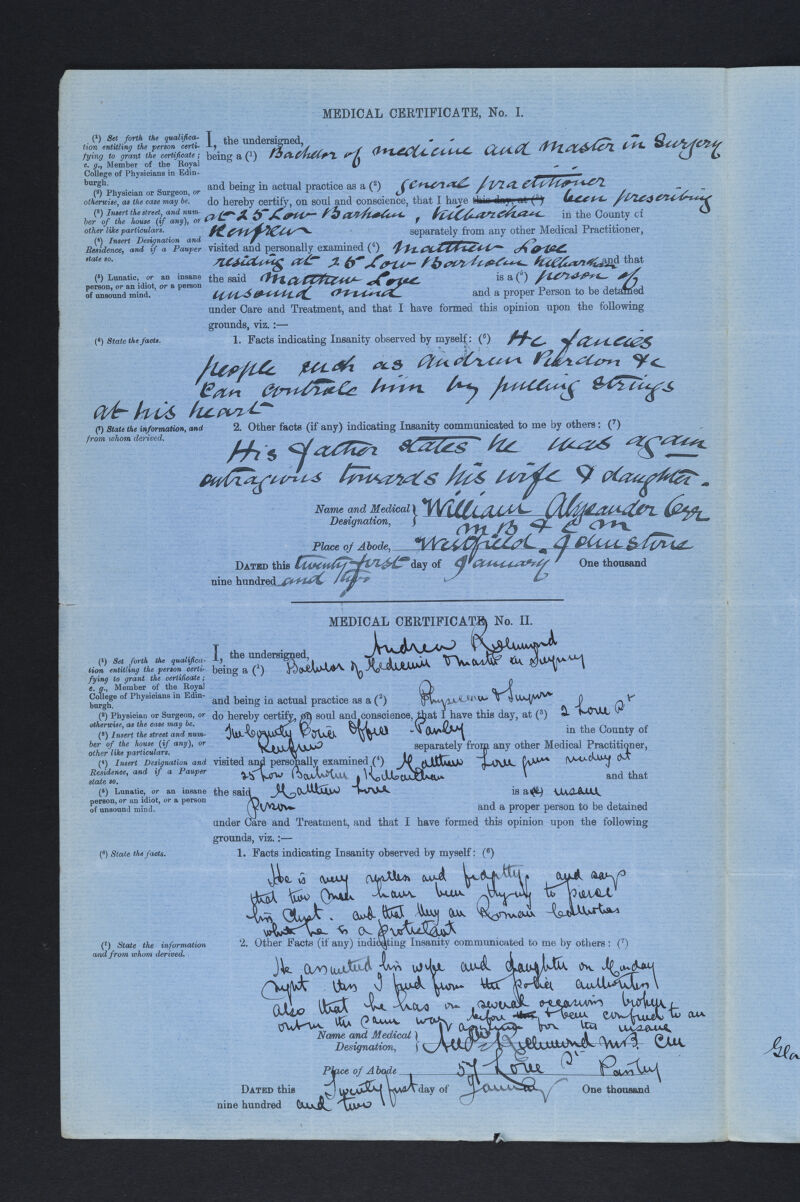 MEDICAL CERTIFICATE, No. I.
(¹) Set forth the qualifica-
tion entitling the person certi-
fying to grant the certificate;
e. g., Member of the Royal
College of Physicians in Edin-
burgh.
(²) Physician or Surgeon, or
otherwise, as the case may be.
(³) Insert the street, and num-
ber of the house (if any), or
other like particulars.
(⁴) Insert Designation and
Residence, and if a Pauper
state so.
(⁵) Lunatic, or an insane
person, or an idiot, or a person
of unsound mind.
I, the undersigned,
being a (¹) Bachelor of medicine and master in Surgery
and being in actual practice as a (²) general practitioner
do hereby certify, on soul and conscience, that I have this day, at (³) been prescribing
at 25 Low Barholm, Kilbarchan in the County of
Renfrew separately from any other Medical Practitioner,
visited and personally examined (⁴) Matthew Love
residing at 25 Low Barholm Kilbarchan and that
the said Matthew Love is a (⁵) person of
unsound mind and a proper Person to be detained
under Care and Treatment, and that I have formed this opinion upon the following
grounds, viz. :—
(⁶) State the facts.
1. Facts indicating Insanity observed by myself: (⁶) He fancies
people such as Andrew &c
can controle him by pulling strings
at his heart
(⁷) State the information, and
from whom derived.
2. Other facts (if any) indicating Insanity communicated to me by others: (⁷)
His father states he was again
outragious towards his wife & daughter.
Name and Medical } William Alexander
Designation, M B & C M
Place of Abode, Westfield. Johnstone
DATED this twenty first day of January One thousand
nine hundred and two
MEDICAL CERTIFICATE, No. II.
(¹) Set forth the qualifica-
tion entitling the person certi-
fying to grant the certificate;
e. g., Member of the Royal
College of Physicians in Edin-
burgh.
(²) Physician or Surgeon, or
otherwise, as the case may be.
(³) Insert the street and num-
ber of the house (if any), or
other like particulars.
(⁴) Insert Designation and
Residence, and if a Pauper
state so.
(⁵) Lunatic, or an insane
person, or an idiot, or a person
of unsound mind.
I, the undersigned, Andrew Richmond
being a (¹) Bachelor of Medicine & Master in Surgery
and being in actual practice as a (²) Physician & Surgeon
do hereby certify, on soul and conscience, that I have this day, at (³) 2 Love St
The County Police Office Paisley in the County of
Renfrew separately from any other Medical Practitioner,
visited and personally examined (⁴) Matthew Love residing at
25 Low Barholm Kilbarchan and that
the said Matthew Love is a (⁵) insane
Person and a proper person to be detained
under Care and Treatment, and that I have formed this opinion upon the following
grounds, viz. :—
(⁶) State the facts.
1. Facts indicating Insanity observed by myself: (⁶)
He is very restless and fidgetty. and says
that two men have been trying to pierce
his Chest. and that they are Roman Catholics
while he is a protestant
(⁷) State the information
and from whom derived.
2. Other Facts (if any) indicating Insanity communicated to me by others: (⁷)
He assaulted his wife and daughter on Monday
night this I find from the police authorities
also that he has on several occasions broken
out in the same way before & been confined to an
asylum for the insane
Name and Medical } Richmond M.B. CM
Designation,
Place of Abode 57 Love St Paisley
DATED this Twenty first day of January One thousand
nine hundred and two
Gla